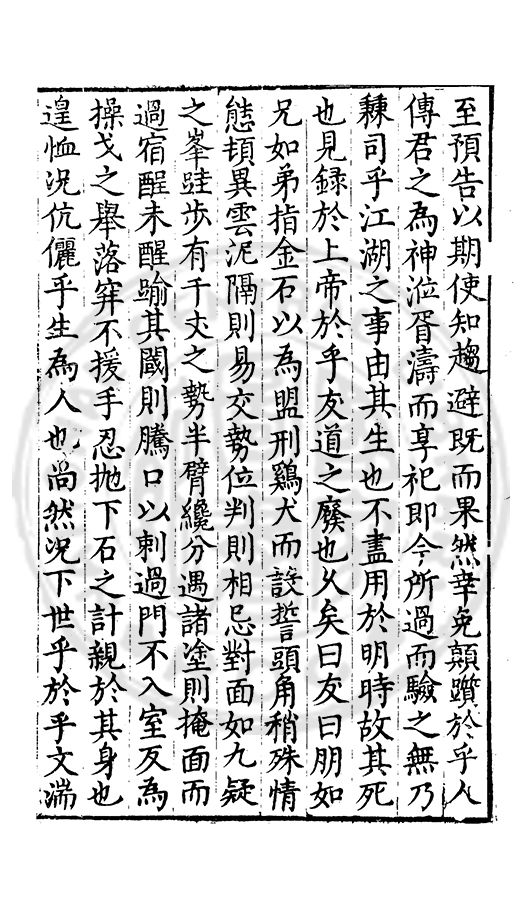 至預告以期使知趨避既而果然幸免顛躓於乎人
傳君之為神涖胥濤而享祀即今所過而驗之無乃
竦司乎江湖之事由其生也不盡用於明時故其死
也見録於上帝於乎友道之廢也久矣曰友曰朋如
兄如弟指金石以為盟刑鷄犬而設誓頭角稍殊情
態頓異雲泥隔則易交勢位判則相忌對面如九疑
之峯跬步有千丈之勢半臂纔分遇諸塗則掩面而
過宿酲未醒踰其閾則騰口以刺過門不入室反為
操戈之舉落穽不援手忍抛下石之計親於其身也
遑恤況伉儷乎生為人也尚然況下世乎於乎文湍